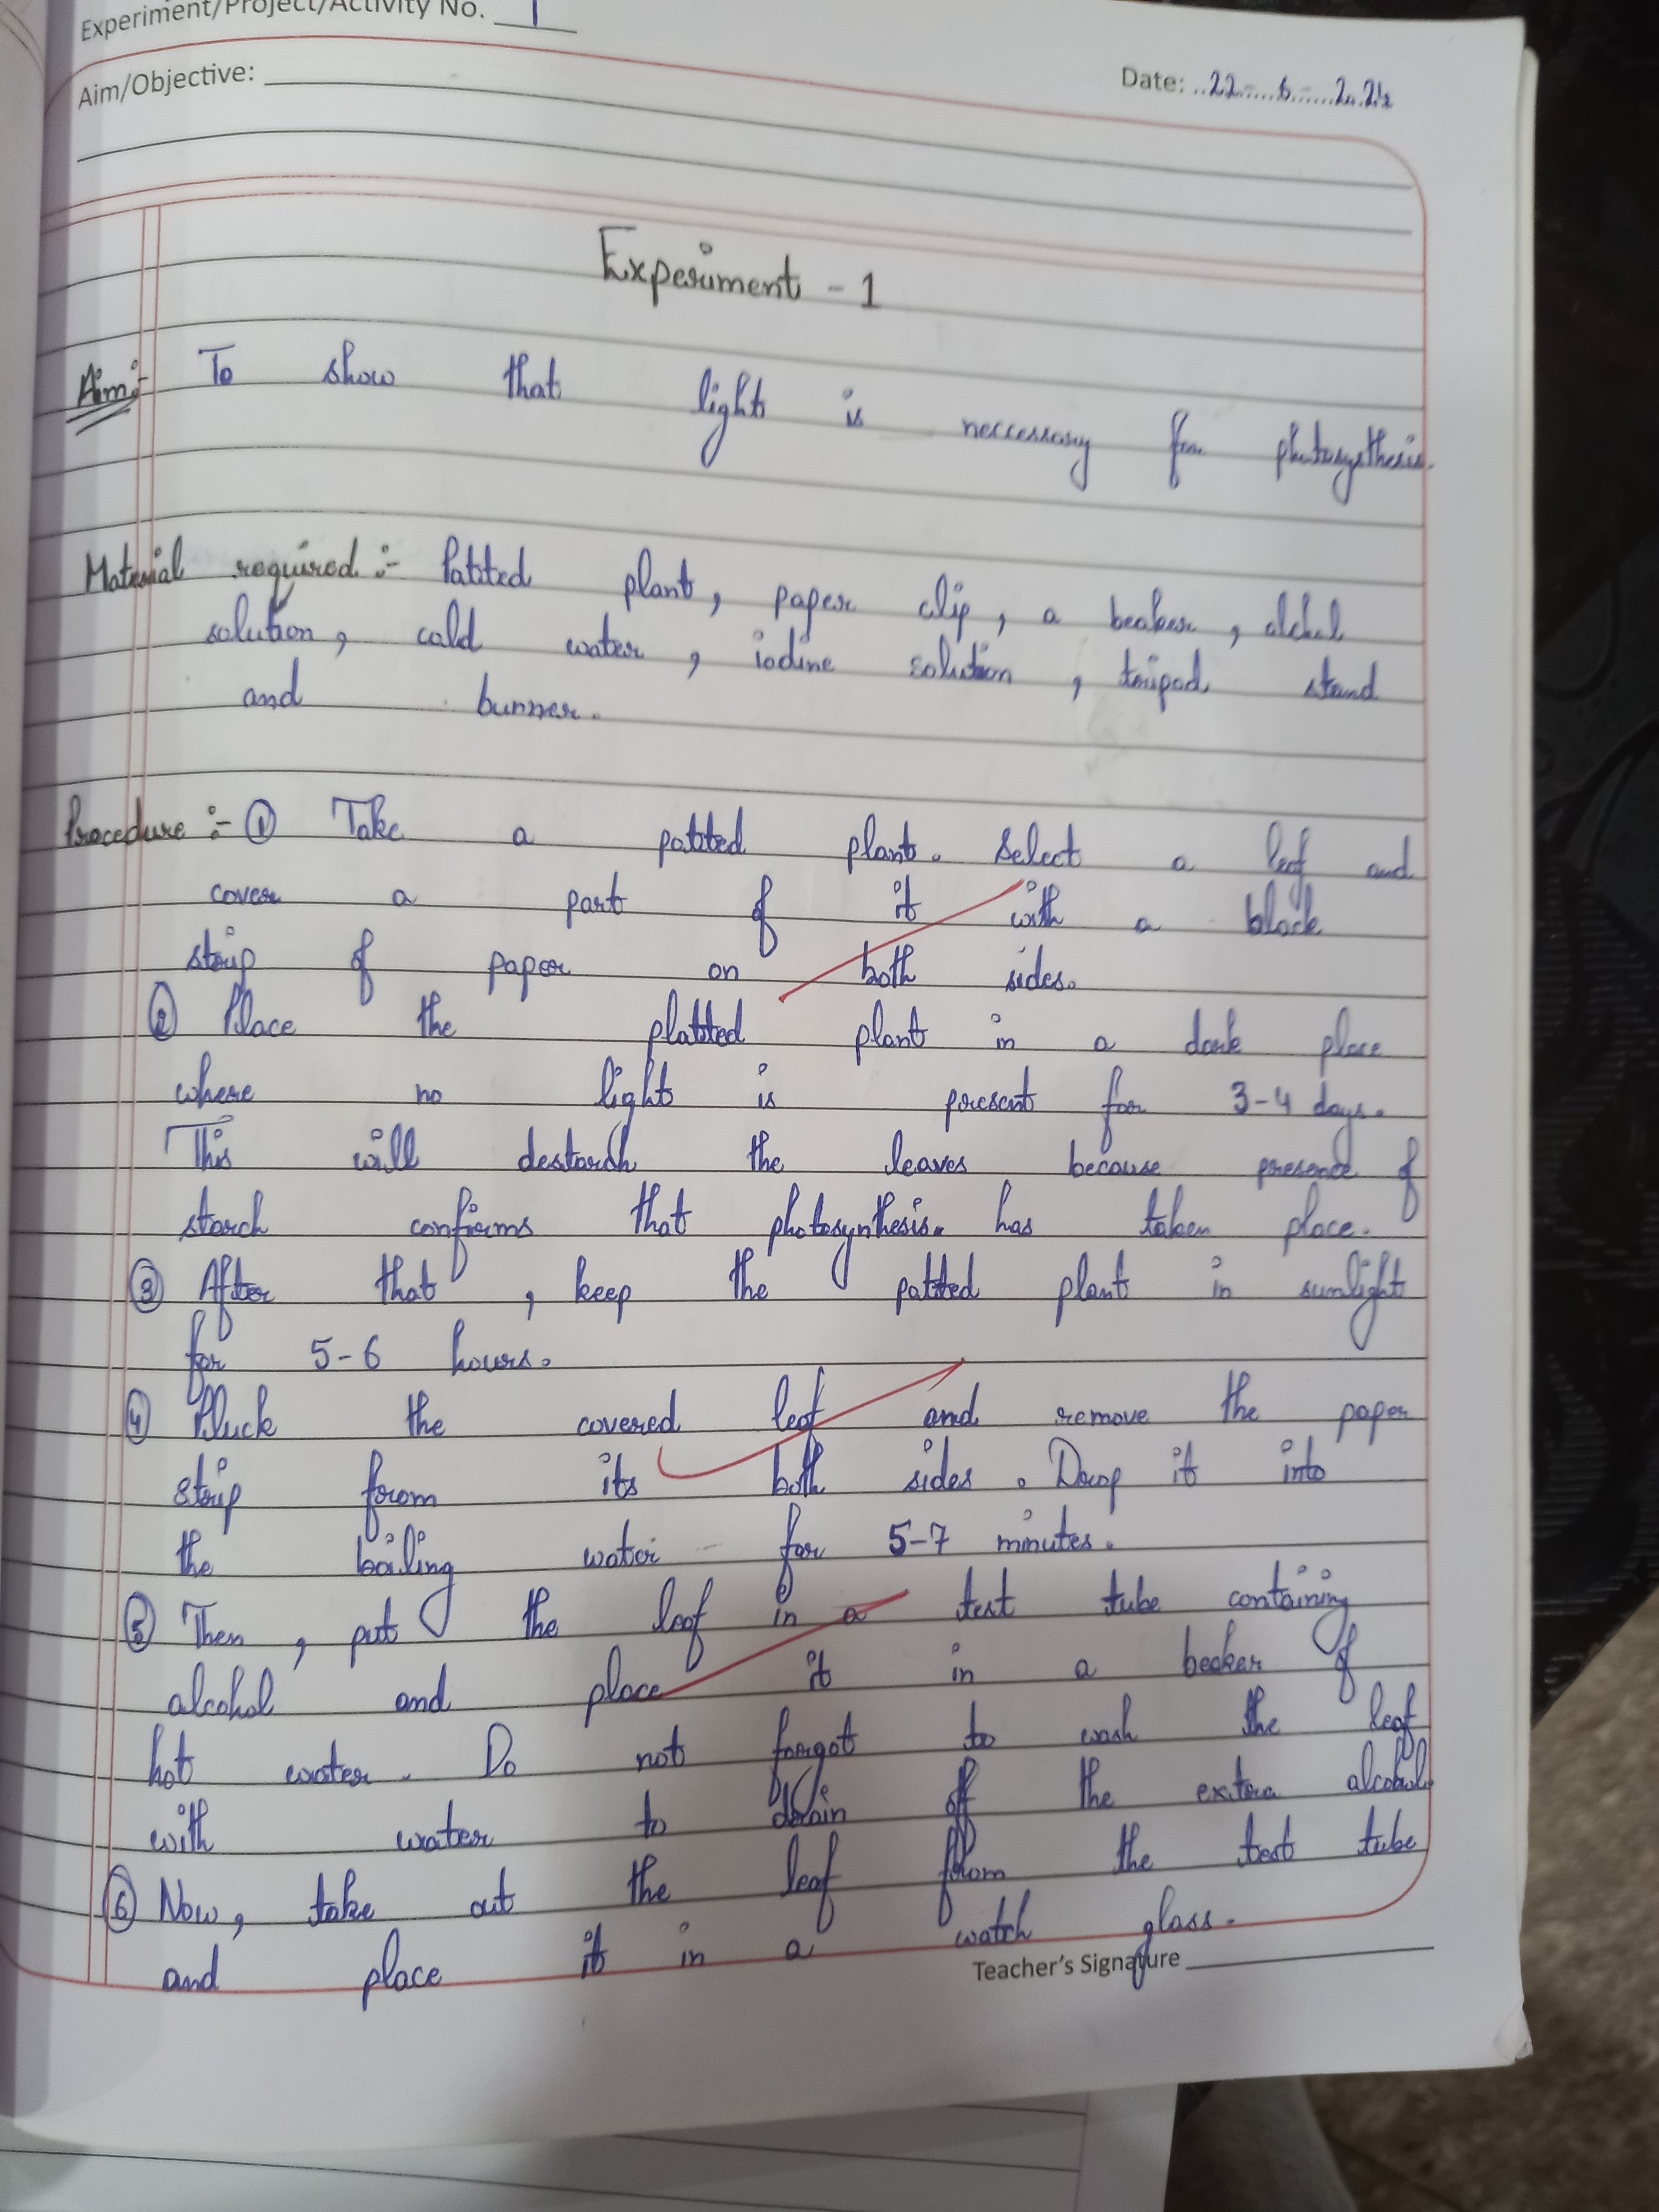 Experiment/Project/Activity No. 1
Aim/Objective:
Date: 22-6-2024
Experiment - 1
Aim:- To show that light is neccessary for photosythesis.
Material required :- Potted plant, paper clip, a beaker, alchol
solution, cold water, iodine solution, tripod stand
and bunner.
Procedure :- ① Take a potted plant. Select a leaf and
cover a part of it with a black
strip of paper on both sides.
② Place the platted plant in a dark place
where no light is present for 3-4 days.
This will destarch the leaves because presence of
starch confirms that photosynthesis. has taken place.
③ After that, keep the potted plant in sunlight
for 5-6 hours.
④ Pluck the covered leaf and remove the paper
strip from its both sides. Drop it into
the boiling water for 5-7 minutes.
⑤ Then, put the leaf in a test tube containing
alcohol and place it in a beaker of
hot water. Do not forgot to wash the leaf
with water to drain off the extra alcohol
⑥ Now, take out the leaf from the test tube
and place it in a watch glass.
Teacher's Signature